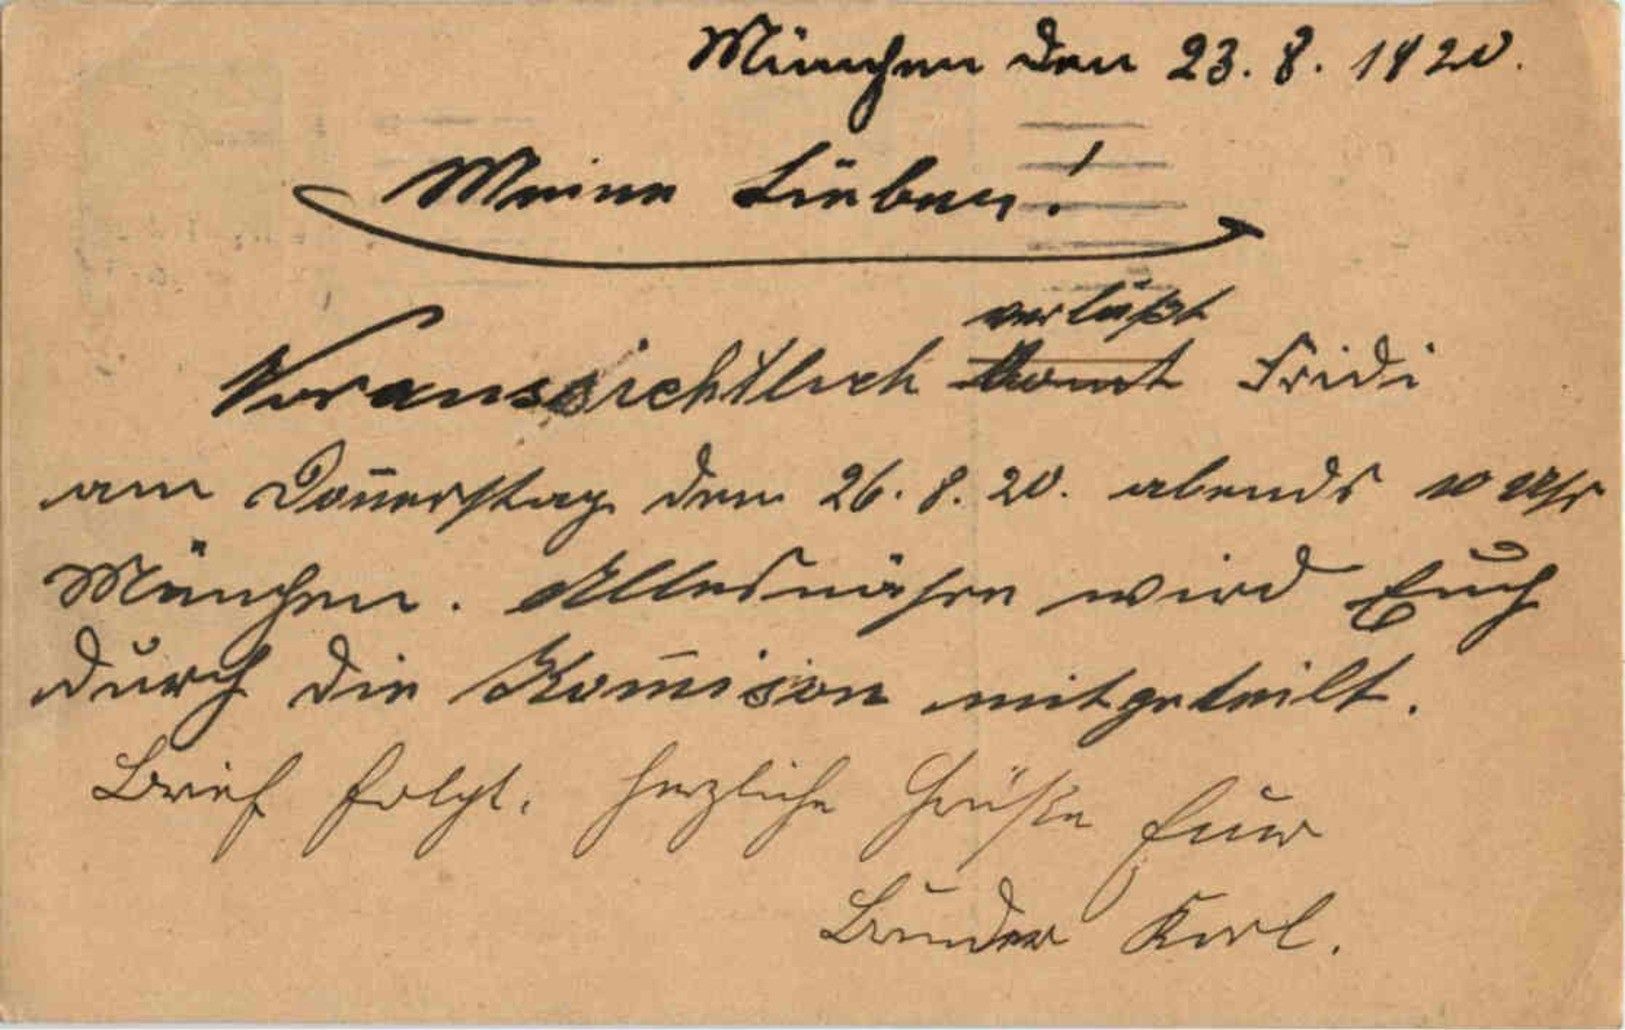 München den 23. 8. 1920.
Meine Lieben!
verläßt
Voraussichtlich komt Fridi
am Doñerstag den 26. 8. 20. abends 10 Uhr
München. Allesnähre wird Euch
durch die Kom̄ision mitgeteilt.
Brief folgt. Herzliche Grüße Euer
Bruder Karl.